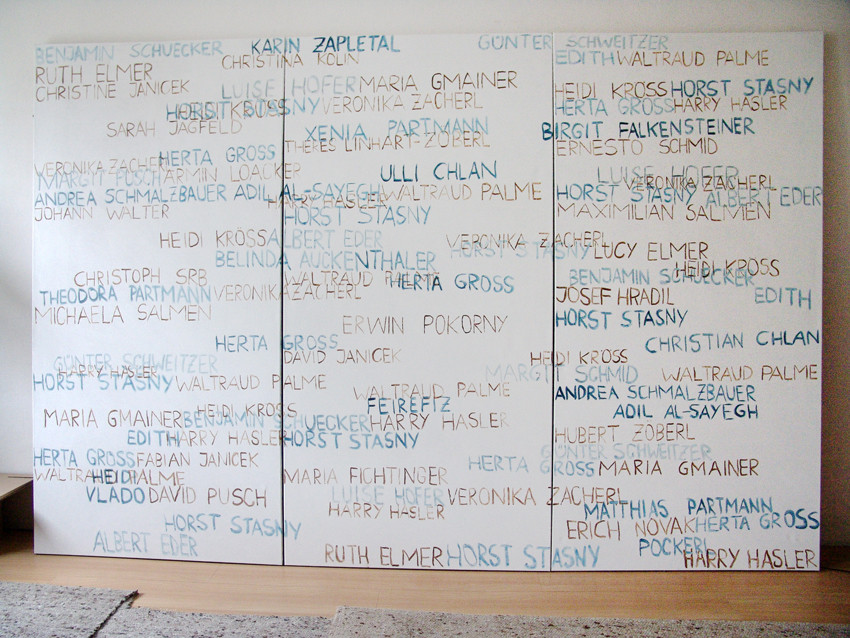 BENJAMIN SCHUECKER KARIN ZAPLETAL GÜNTER SCHWEITZER
CHRISTINA KOLIN EDITH WALTRAUD PALME
RUTH ELMER
CHRISTINE JANICEK LUISE HOFER MARIA GMAINER HEIDI KRÖSS HORST STASNY
HORST STASNY VERONIKA ZACHERL HERTA GROSS HARRY HASLER
SARAH JAGFELD XENIA PARTMANN BIRGIT FALKENSTEINER
THERES LINHART-ZOBERL ERNESTO SCHMID
VERONIKA ZACHERL HERTA GROSS
MARGIT PUSCH ARMIN LOACKER ULLI CHLAN LUISE HOFER
VERONIKA ZACHERL
ANDREA SCHMALZBAUER ADIL AL-SAYEGH WALTRAUD PALME HORST STASNY ALBERT EDER
HARRY HASLER
JOHANN WALTER HORST STASNY MAXIMILIAN SALMEN
HEIDI KRÖSS ALBERT EDER VERONIKA ZACHERL
HORST STASNY LUCY ELMER
BELINDA AUCKENTHALER HEIDI KRÖSS
CHRISTOPH SRB WALTRAUD PALME HERTA GROSS BENJAMIN SCHUECKER
THEODORA PARTMANN VERONIKA ZACHERL JOSEF HRADIL EDITH
MICHAELA SALMEN ERWIN POKORNY HORST STASNY
HERTA GROSS CHRISTIAN CHLAN
DAVID JANICEK HEIDI KRÖSS
GÜNTER SCHWEITZER
HARRY HASLER MARGIT SCHMID WALTRAUD PALME
HORST STASNY WALTRAUD PALME
WALTRAUD PALME ANDREA SCHMALZBAUER
HEIDI KROSS FEIREFIZ ADIL AL-SAYEGH
MARIA GMAINER BENJAMIN SCHUECKER HARRY HASLER
EDITH HARRY HASLER HORST STASNY HUBERT ZOBERL
GÜNTER SCHWEITZER
HERTA GROSS FABIAN JANICEK HERTA GROSS MARIA GMAINER
WALTRAUD PALME HEIDI MARIA FICHTINGER
VLADO DAVID PUSCH LUISE HOFER VERONIKA ZACHERL
HARRY HASLER MATTHIAS PARTMANN
HORST STASNY ERICH NOVAK HERTA GROSS
ALBERT EDER POCKERL
RUTH ELMER HORST STASNY HARRY HASLER